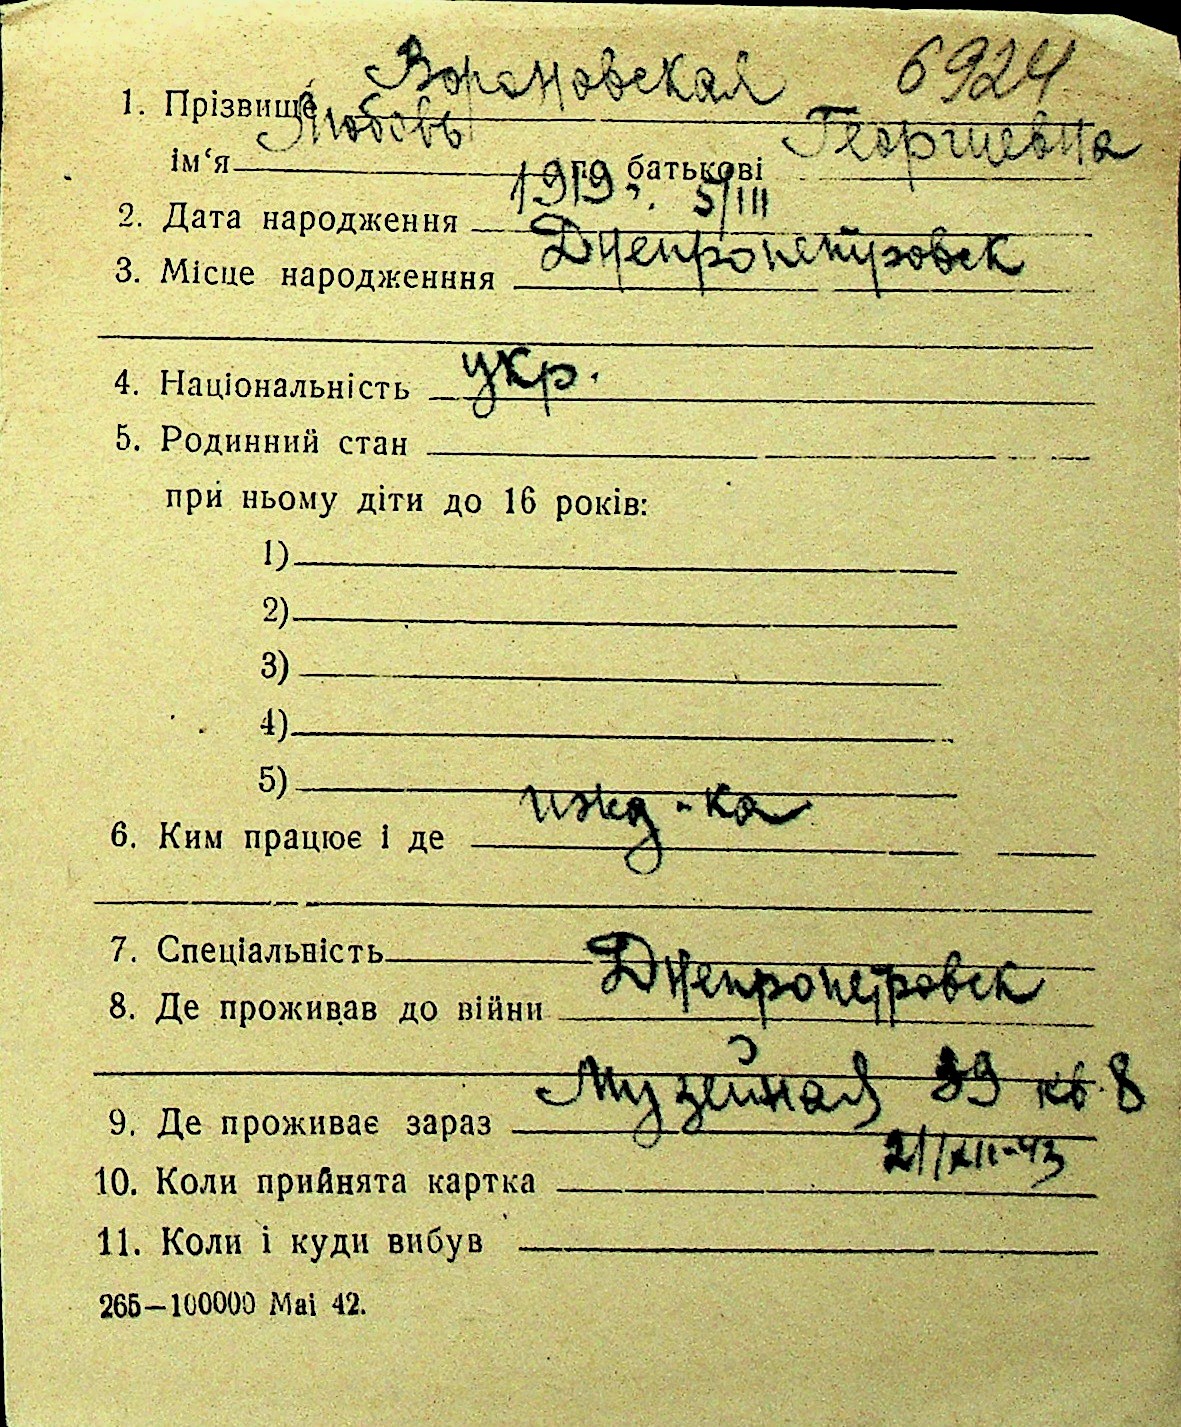 6924
1. Прізвище Вороновская
ім‘я Любовь по батькові Георгиевна
2. Дата народження 1919 г. 5/III
3. Місце народженння Днепропетровск
4. Національність укр.
5. Родинний стан
при ньому діти до 16 років:
1)
2)
3)
4)
5)
6. Ким працює і де ижд-ка
7. Спеціальність
8. Де проживав до війни Днепропетровск
9. Де проживає зараз Музейная 39 кв. 8
10. Коли прийнята картка 21/XII-43
11. Коли і куди вибув
265—100000 Mai 42.